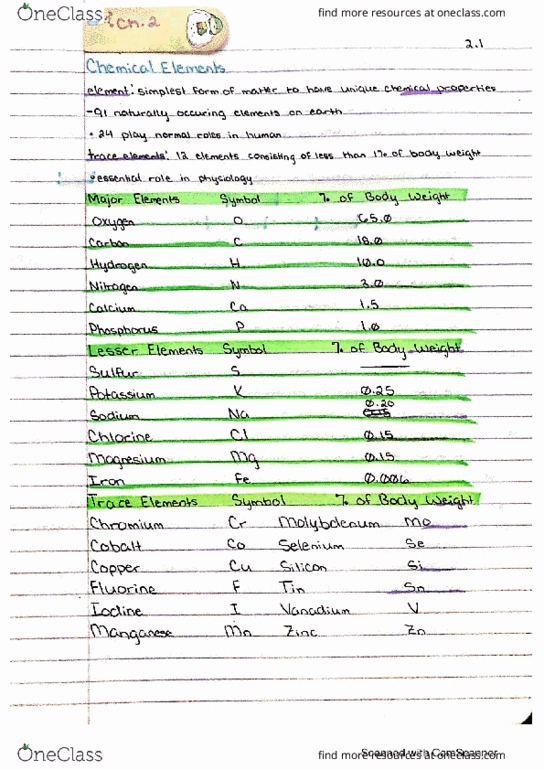 OneClass
find more resources at oneclass.com
Ch.2
2.1
Chemical Elements
element: simplest form of matter to have unique chemical properties
-91 naturally occuring elements on earth
• 24 play normal roles in human
trace elements: 12 elements consisting of less than 1% of body weight
essential role in physiology
Major Elements Symbol % of Body Weight
Oxygen O 65.0
Carbon C 18.0
Hydrogen H 10.0
Nitrogen N 3.0
Calcium Ca 1.5
Phosphorus P 1.0
Lesser Elements Symbol % of Body Weight
Sulfur S
Potassium K 0.25
Sodium Na 0.20
Chlorine Cl 0.15
Magnesium Mg 0.15
Iron Fe 0.006
Trace Elements Symbol % of Body Weight
Chromium Cr Molybdenum Mo
Cobalt Co Selenium Se
Copper Cu Silicon Si
Fluorine F Tin Sn
Iodine I Vanadium V
Manganese Mn Zinc Zn
OneClass
find more resources at oneclass.com
Scanned with CamScanner